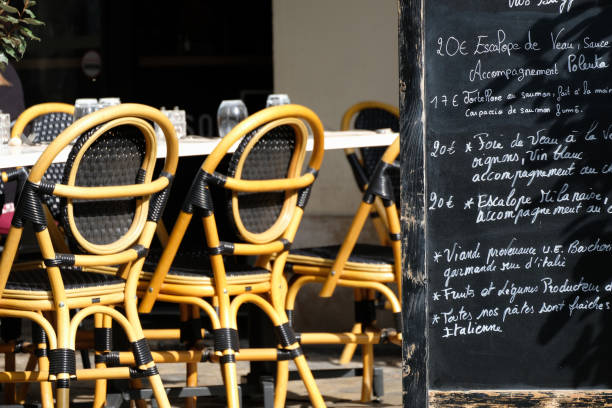 20€ Escalope de Veau, Sauce
Accompagnement Polenta
17€ Tortellone au saumon, fait à la main
Carpaccio de saumon fumé.
20€ * Foie de Veau à la
oignons, Vin blanc
accompagnement au
20€ * Escalope Milanaise,
accompagnement au
* Viande provenance U.E. Boucher
garmands de d'italie
* Fruits et légumes Producteur d
* Toutes nos pâtes sont fraîches
Italienne